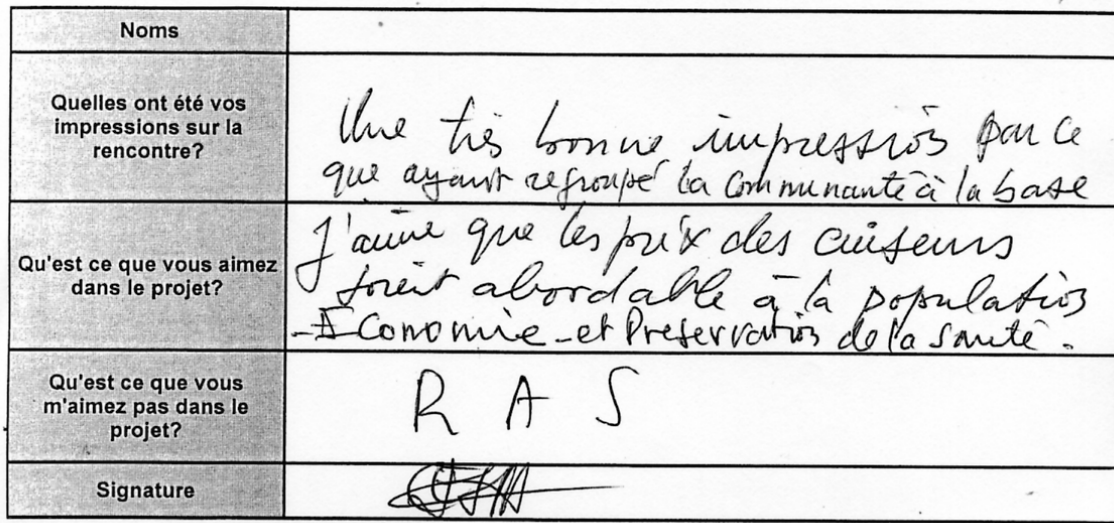 Noms
Quelles ont été vos
impressions sur la
rencontre?
Une très bonne impression par ce
que ayant regroupé la communauté à la base
Qu'est ce que vous aimez
dans le projet?
J'aime que les prix des cuiseurs
soient abordable à la population
- Economie et Preservation de la santé.
Qu'est ce que vous
m'aimez pas dans le
projet?
R A S
Signature